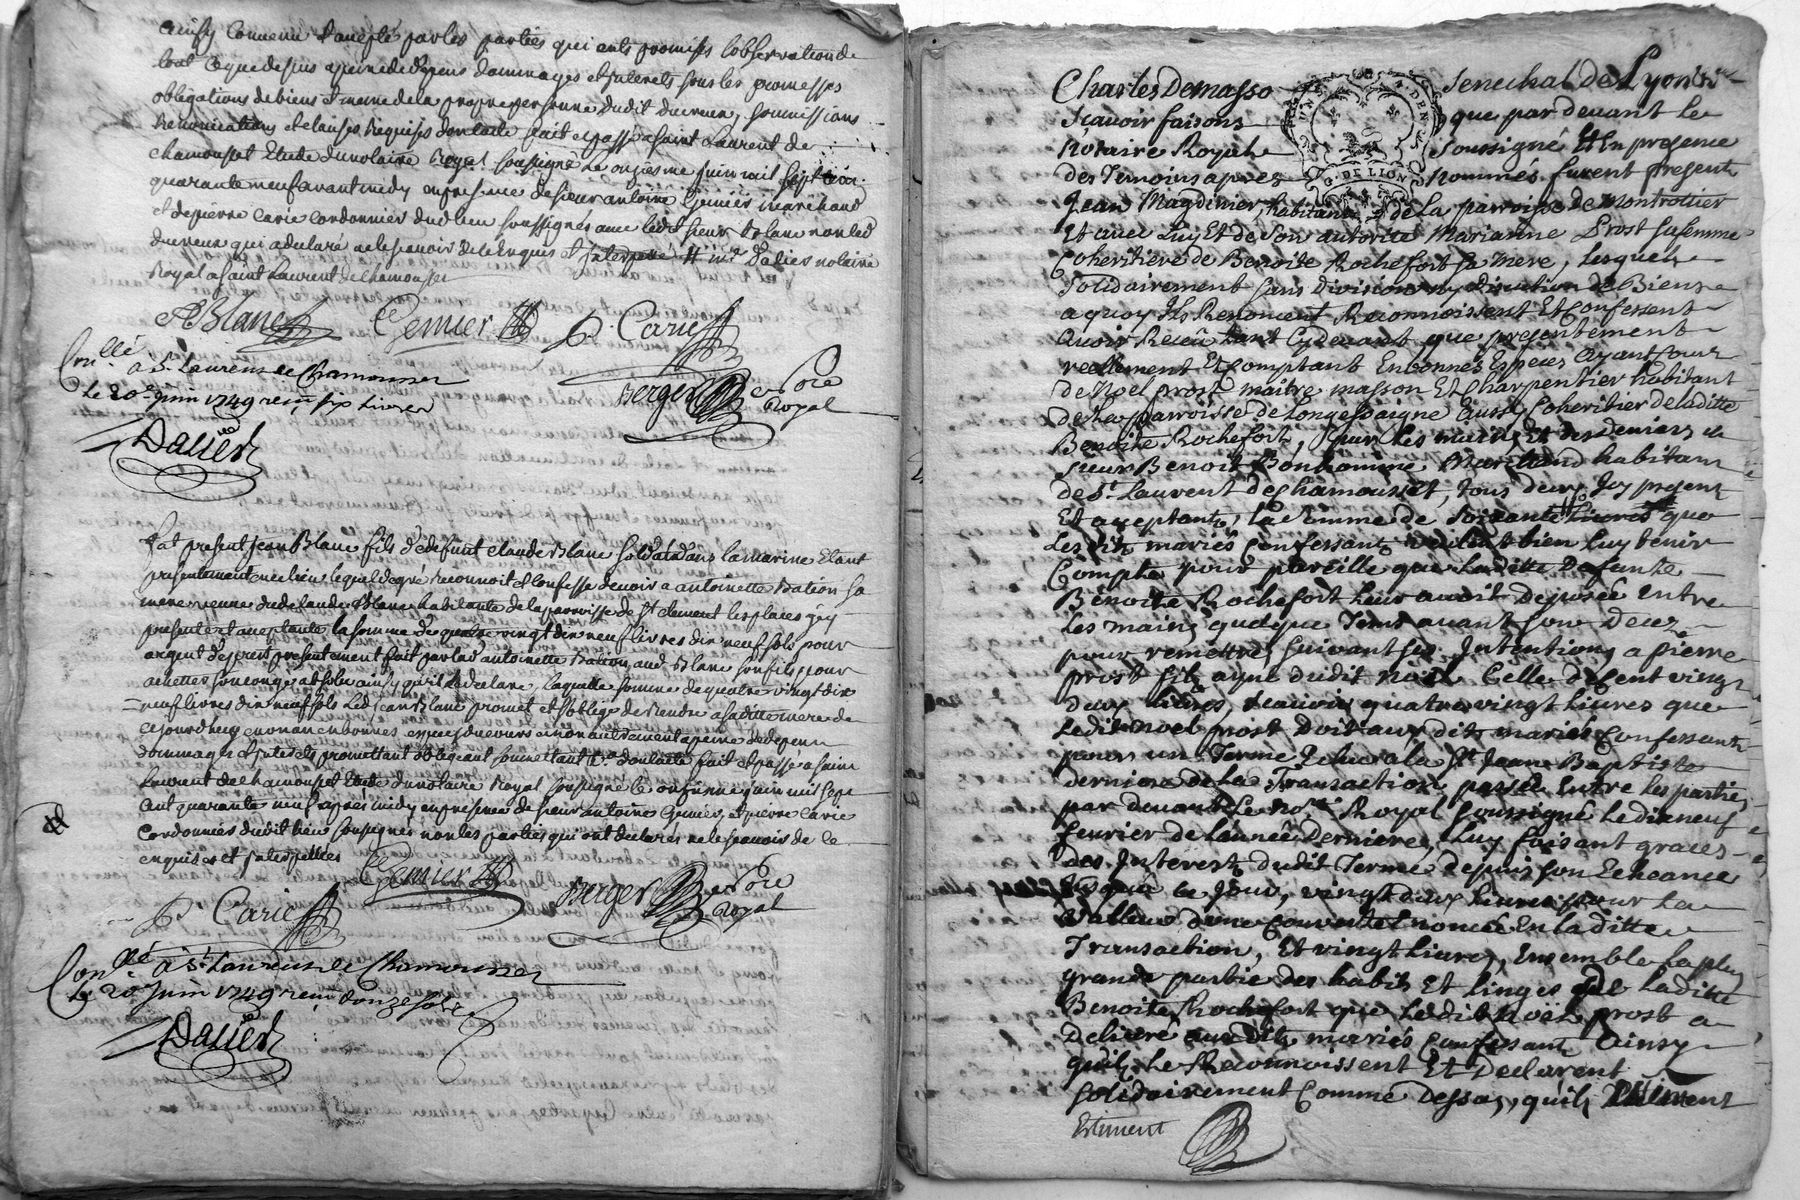 ainsy convenu et accepté par les parties qui onts promises l'observation de
tout ce que dessus a peine de depens dommages et interets sous les promesses
obligations de biens et meme de la propre personne dudit ducreux, soumissions
Renonciations et clauses Requises dont acte fait et passé a saint Laurent de
chamousset Etude du notaire Royal soussigné le onzieme juin mil sept cent
quarante neuf avant midy en presence de sieur antoine Gemier marchand
et de pierre Carie Cordonnier dudit lieu soussignés avec ledit sieur Blanc non led
ducreux qui a declaré ne le scavoir de ce Enquis et interpellé notaire
Royal a saint Laurent de chamousset
Blanc Gemier P. Carie
Conllé a St Laurens de Chamousset
Le 20e Juin 1749 six Livres
Berger Nore Royal
Dalier
fut present jean Blanc fils de defunt claude Blanc soldat dans la marine Etant
presentement en ce lieu lequel de gré reconnoit et confesse devoir a antoinette Bation sa
mere veuve dudit claude Blanc habitante de la parroisse de St clement les places icy
presente et acceptante la somme de quatre vingt dix neuf livres dix neuf sols pour
argent de prest presentement fait par lad antoinette Bation aud Blanc son fils pour
achetter son congé absolu ainsy qu'il le declare, laquelle somme de quatre vingt dix
neuf livres dix neuf sols led jean Blanc promet et s'oblige de Rendre a saditte mere de
ce jourd'huy en un an en bonnes especes de cours et non autrement a peine de depens
dommages et interets promettant obligeant soumettant &a dont acte fait et passé a saint
Laurent de chamousset Etude du notaire Royal soussigné le onzieme juin mil sept
cent quarante neuf apres midy en presence de sieur antoine Gemier, et pierre Carie
Cordonnier dudit lieu soussignés non les parties qui ont declarés ne le scavoir de ce
enquises et interpellées
Gemier
P. Carie
Berger Nore Royal
Conllé a St Laurens de Chamousset
Le 20 Juin 1749 douze sols
Dalier
Charles Demasso Senechal de Lyon
Scavoir faisons que par devant le
Notaire Royal Soussigné Et En presence
des Temoins apres Nommés furent present
G. DE LION
Jean Magdinier, habitant de la parroisse de Montrottier
Et avec Luy Et de Son autorité Marianne Prost sa femme
Coheritiere de Benoite Rochefort sa Mere, lesquels
Solidairement sans division ny discution de Biens
a quoy Ils Renoncent Reconnoissent Et Confessent
avoir Receu tant Cydevant que presentement
reellement Et Comptant En bonnes Especes ayant Cour
de Noel prost maitre masson Et Charpentier habitant
de la parroisse de Longessaigne aussy Coheritier de laditte
Benoite Rochefort, par les mains Et des deniers de
Sieur Benoit Bonhomme Marchand habitant
de St Laurent de Chamousset, tous deux Icy present
Et acceptants, la Somme de Soixante livres que
Les dits mariés Confessants veulent bien luy tenir
Compte pour pareille que laditte Defunte
Benoite Rochefort leur avoit Deposée Entre
Les mains quelque Tems avant son Decez
pour remettre, suivant ses Intentions a pierre
prost fils ayné dudit Noël Celle de Cent vingt
deux livres, scavoir quatre vingt livres que
Ledit Noel prost Doit aux dits mariés Confessants
pour un Terme Echu a la St Jean Baptiste
derniere de la Transaction passée Entre les parties
par devant Le No.re Royal soussigné le dix neuf
fevrier de l'année Derniere, Luy faisant graces
des Interest dudit Terme depuis son Echeance
Jusqu'a ce Jour, vingt deux livres pour la
valleur d'une couverte Enoncée En laditte
Transaction, Et vingt livres, Ensemble la plus
grande partie des habits Et linges de laditte
Benoite Rochefort que ledit Noël prost a
Delivré aux dits mariés Confessants ainsy
qu'ils le Reconnoissent Et Declarent
Solidairement Comme Dessus, qu'ils
Estiment